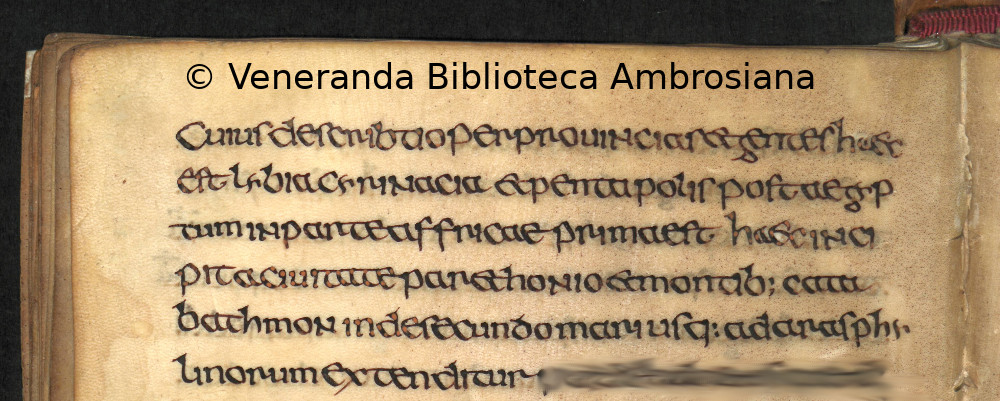 © Veneranda Biblioteca Ambrosiana
Cuius describtio per prouincias et gentes haec
est lybia cyrinacia et pentapolis post aegyp
tum in parte affricae prima est haec inci
pit a ciuitate parethonio et montib; cata
bathmon inde secundo mari usq; ad aras phy
linorum extenditur